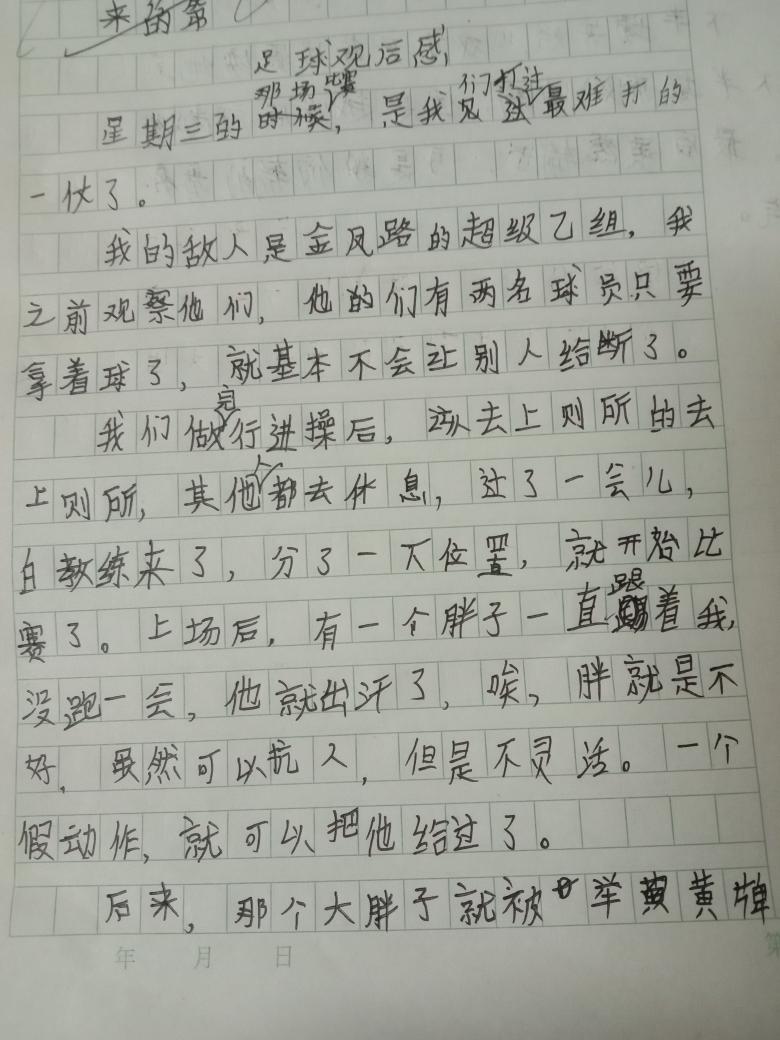 来的第
足球观后感
那场比赛 们打过
星期三的时候，是我见过最难打的
一伙了。
我的敌人是金凤路的超级乙组，我
之前观察他们，他的们有两名球员只要
拿着球了，就基本不会让别人给断了。
完
我们做行进操后，该去上则所的去
上则所，其他人都去休息，过了一会儿，
白教练来了，分了一下位置，就开始比
赛了。上场后，有一个胖子一直跟着我，
没跑一会，他就出汗了，唉，胖就是不
好，虽然可以抗人，但是不灵活。一个
假动作，就可以把他给过了。
后来，那个大胖子就被举黄黄牌
年 月 日
第